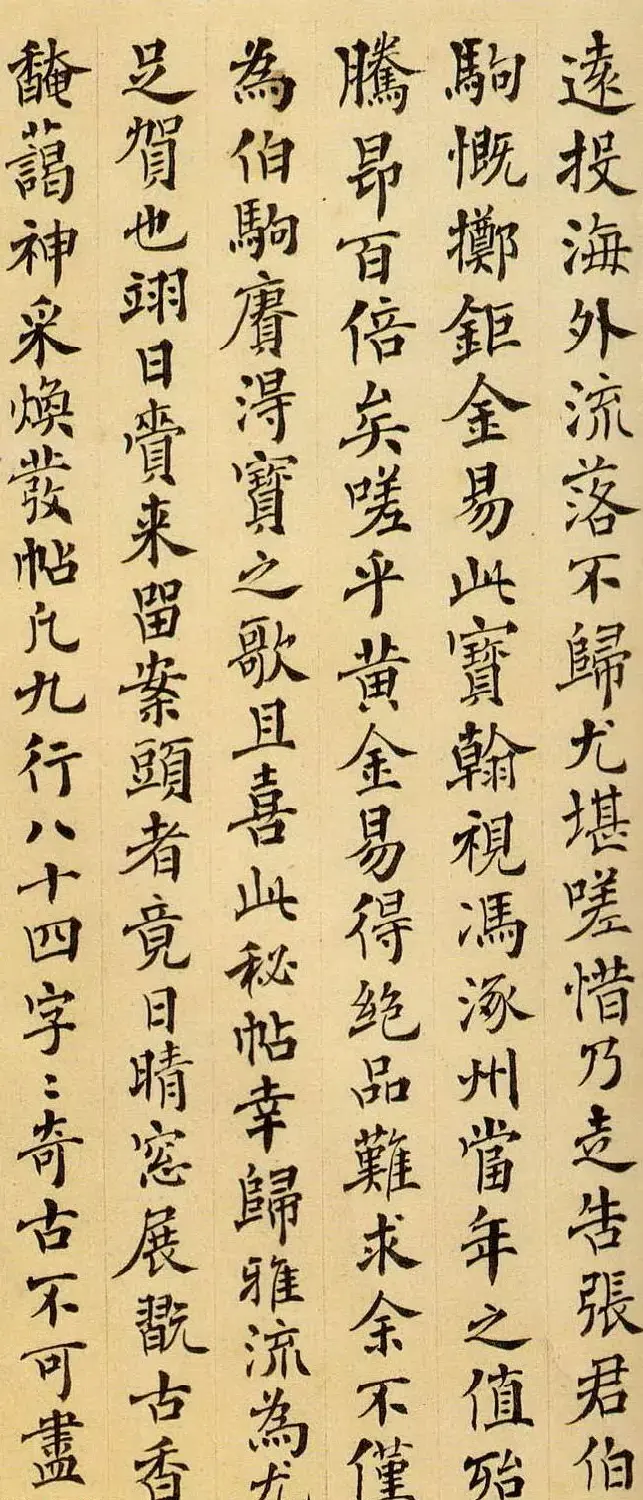 遠投海外流落不歸尤堪嗟惜乃走告張君伯
駒慨擲鉅金易此寶翰視馮涿州當年之值殆
騰昂百倍矣嗟乎黄金易得絕品難求余不僅
為伯駒賡淂寶之歌且喜此秘帖幸歸雅流為尤
足賀也翊日賫来留案頭者竟日晴窓展翫古香
馣藹神采煥發帖凡九行八十四字〻奇古不可盡